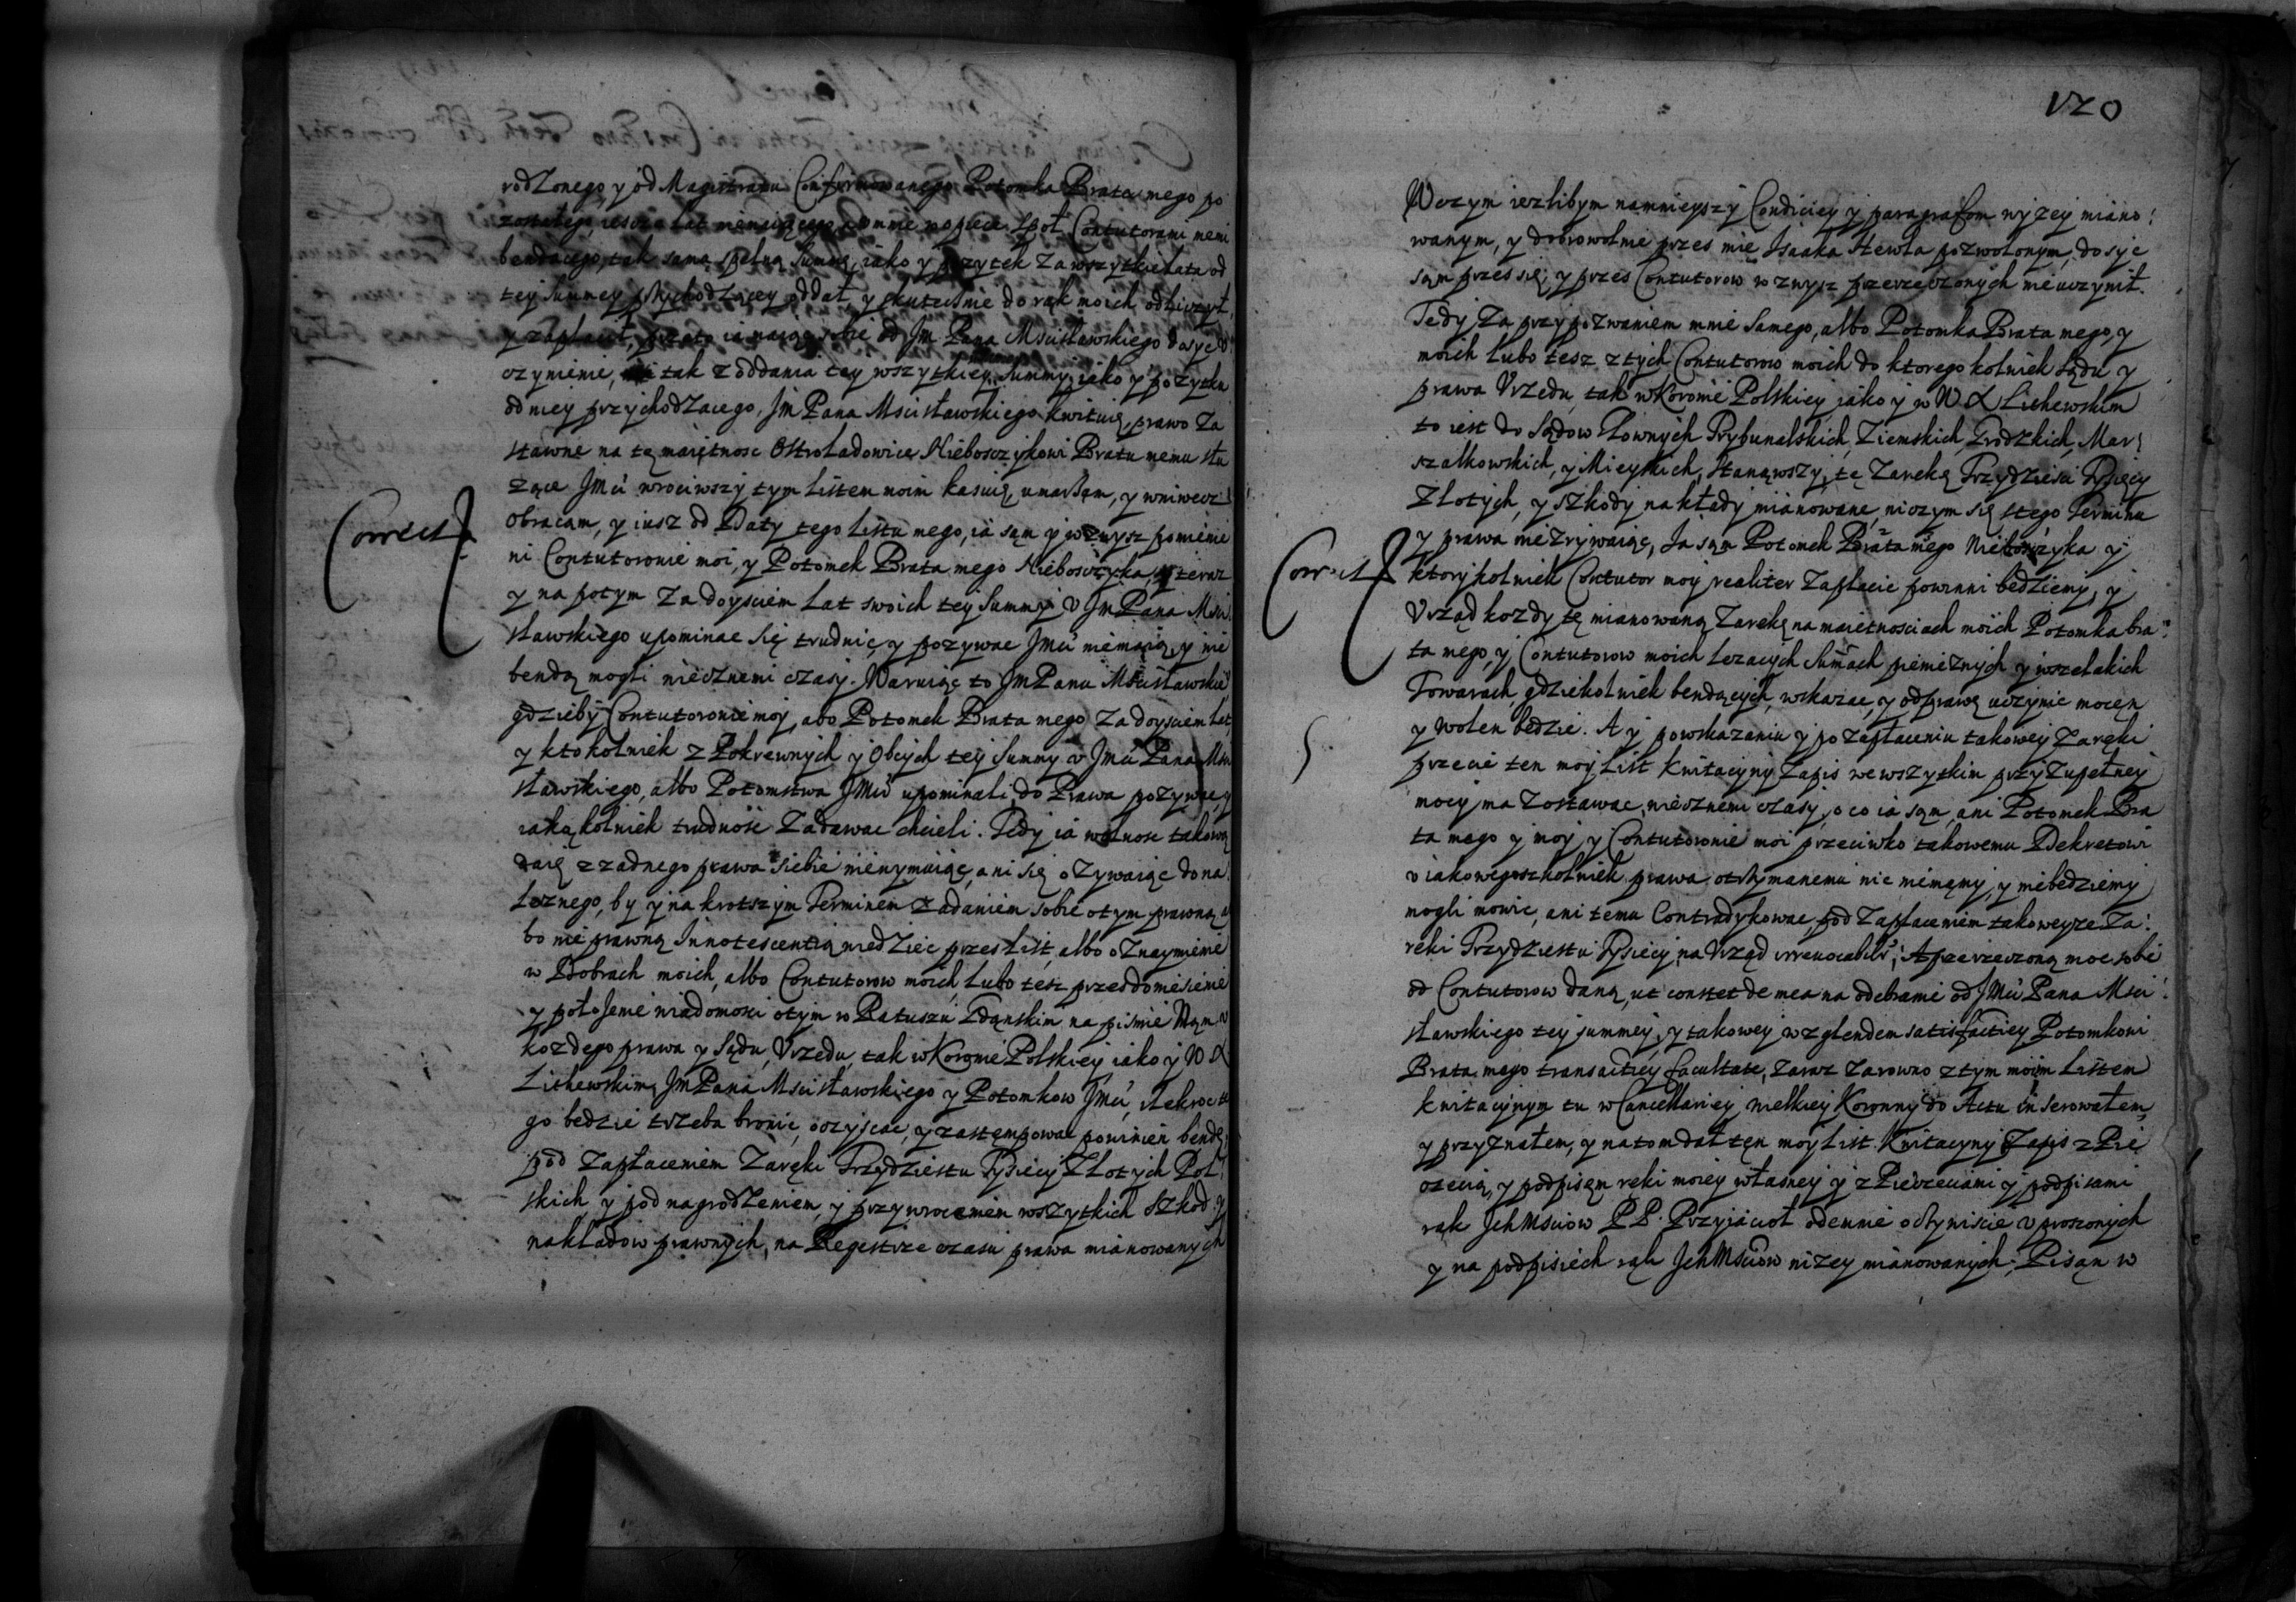 rodzonego y od Magistratu Confirmowanego Potomka Brata mego po
zostałego, ieszcze Lat niemaiącego, w mnie w opiece społ Contutorami memi
bendącego, tak samą spełną Summę, iako y pozytek za wszytkie Lata od
tey Summey przychodzącey oddał, y skutecznie do rąk moich odliczył,
y zapłacił, przeto ia maiąc sobie od Jm Pana Mscisławskiego dosyc
czynienie, tak z oddania tey wszytkiey Summy, iako y pozytku
od niey przychodzacego, Jm Pana Mscisławskiego kwituię, prawo za
stawne na tę maiętnosc Ostroladowice Nieboszczykowi Bratu memu słu
zące Jmći wrociwszy tym Listem moim kasuię, umarzam, y wniwecz
obracam, y iusz od Daty tego Listu mego, ia sąm y wzwysz pomienie
ni Contutorowie moi, y Potomek Brata mego Nieboszczyka, y teraz
y na potym za doysciem Lat swoich tey Summy v Jm Pana Msci
sławskiego upominac się trudnic, y pozywac Jmći niemaią, y nie
bendą mogli wiecznemi czasy. Waruiąc to Jm Panu Mscisławskie
gdzieby Contutorowie moy, abo Potomek Brata mego za doysciem Lat,
y ktokolwiek z Pokrewnych y Obcych tey Summy v Jmći Pana Msci
sławskiego, albo Potomstwa Jmći upominali, do Prawa pozywac, y
iakąkolwiek trudnosc zadawac chcieli. Tedy ia wolnosc takową
daię z zadnego prawa siebie niewymuiąc, ani się ozywaiąc do na
leznego, by y na krotszym Terminem zadaniem sobie otym prawną a
bo nie prawną Innotescentią wiedziec przes List, albo oznaymienie
w Dobrach moich, albo Contutorow moich, Lubo tesz przes doniesienie
y położenie wiadomosci otym w Ratuszu Gdąnskim na pismie Nąm v
kozdego prawa y Sądu, Vrzedu, tak w Koronie Polskiey, iako y W X
Lithewskim, Jm Pana Mscisławskiego y Potomkow Jmći, ilekroc te
go bedzie trzeba bronic, oczyscac, y zastępowac powinien bendę,
pod zapłaceniem Zaręki Trzydziestu Tysiecy Złotych Pol
skich, y pod nagrodzeniem, y przywroceniem wszytkich Szkod y
nakładow prawnych, na Regestrze czasu prawa mianowanych
Correct
120
Wczym iezlibym namnieyszy Condiciey y paragrafom wyzey miano
wanym, y dobrowolnie przes mię Isaaka Hewla pozwolonym, dosyc
sąm przes się, y przes Contutorow wzwysz przerzeczonych nieuczynił.
Tedy za przypozwaniem mnie samego, albo Potomka Brata mego, y
moich lubo tesz z tych Contutorow moich do ktorego kolwiek Sądu y
prawa Vrzedu, tak w Koronie Polskiey iako y w W X Lithewskim
to iest do Sądow Głownych Trybunalskich, Ziemskich, Grodzkich, Mar
szałkowskich, y Mieyskich, stanąwszy, tę Zarekę Trzydziesci Tysięcy
Złotych, y szkody nakłady mianowane, niczym się stego Terminu
y prawa niezrywaiąc, Ja sąm Potomek Brata mego Nieboszczyka y
ktorykolwiek Contutor moy realiter zapłacic powinni bedziemy, y
Vrząd kozdy tę mianowaną Zarekę na maietnosciach moich Potomka bra
ta mego, y Contutorow moich lezacych Sumach pieniężnych y wszelakich
Towarach, gdziekolwiek bendących, wskazac, y odprawę uczynic mocen
y wolen bedzie. A y po wskazaniu y po zapłaceniu takowey zaręki
przecie ten moy List Kwitacyny Zapis we wszytkim przy zupełney
mocy ma zostawac, wiecznemi czasy, o co ia sąm, ani Potomek Bra
ta mego y moy, y Contutorowie moi przeciwko takowemu Dekretowi
v iakowegoszkolwiek prawa otrzymanemu nic niemąmy, y niebedziemy
mogli mowic, ani temu Contradykowac, pod zapłaceniem takoweyze Za
reki Trzydziestu Tysiecy, na Vrząd irrevocabilr; A przerzeczoną moc sobie
od Contutorow daną, ut constet de mea na odebranie od Jmći Pana Msci
sławskiego tey summey, y takowey wzglendem satisfactiey Potomkowi
Brata mego transactiey facultate, zaraz zarowno z tym moim Listem
kwitacyinym tu w Cancellariey wielkiey Koronny do Actu inserowałem,
y przyznałem, y na tom dał tęn moy List Kwitacyny Zapis z Pie
czecią, y podpisąm reki moiey własney y z Pieczeciami y podpisami
rąk Ichmsciow PP. Przyiacioł odemnie oczywiscie vproszonych
y na podpisiech rąk Ichmsciow nizey mianowanych; Pisąn w
Correct